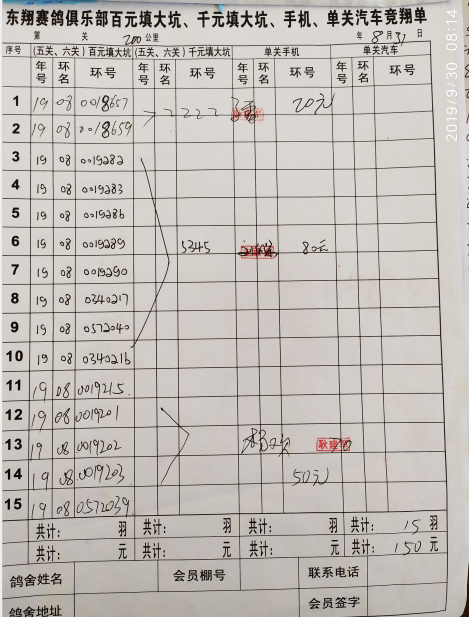 东翔赛鸽俱乐部百元填大坑、千元填大坑、手机、单关汽车竞翔单
第 关 200公里 年 8月31日
序号 (五关、六关)百元填大坑 (五关、六关)千元填大坑 单关手机 单关汽车
年号 环名 环号 年号 环名 环号 年号 环名 环号 年号 环名 环号
1 19 08 0018657 20元
2 19 08 0018659
3 19 08 0019282
4 19 08 0019283
5 19 08 0019286
6 19 08 0019289 5345 80元
7 19 08 0019290
8 19 08 0340217
9 19 08 0572040
10 19 08 0340216
11 19 08 0019215
12 19 08 0019201
13 19 08 0019202
14 19 08 0019203 50元
15 19 08 0572039
共计: 羽 共计: 羽 共计: 羽 共计: 15 羽
共计: 元 共计: 元 共计: 元 共计: 150 元
鸽舍姓名 会员棚号 联系电话
鸽舍地址 会员签字
2019/9/30 08:14